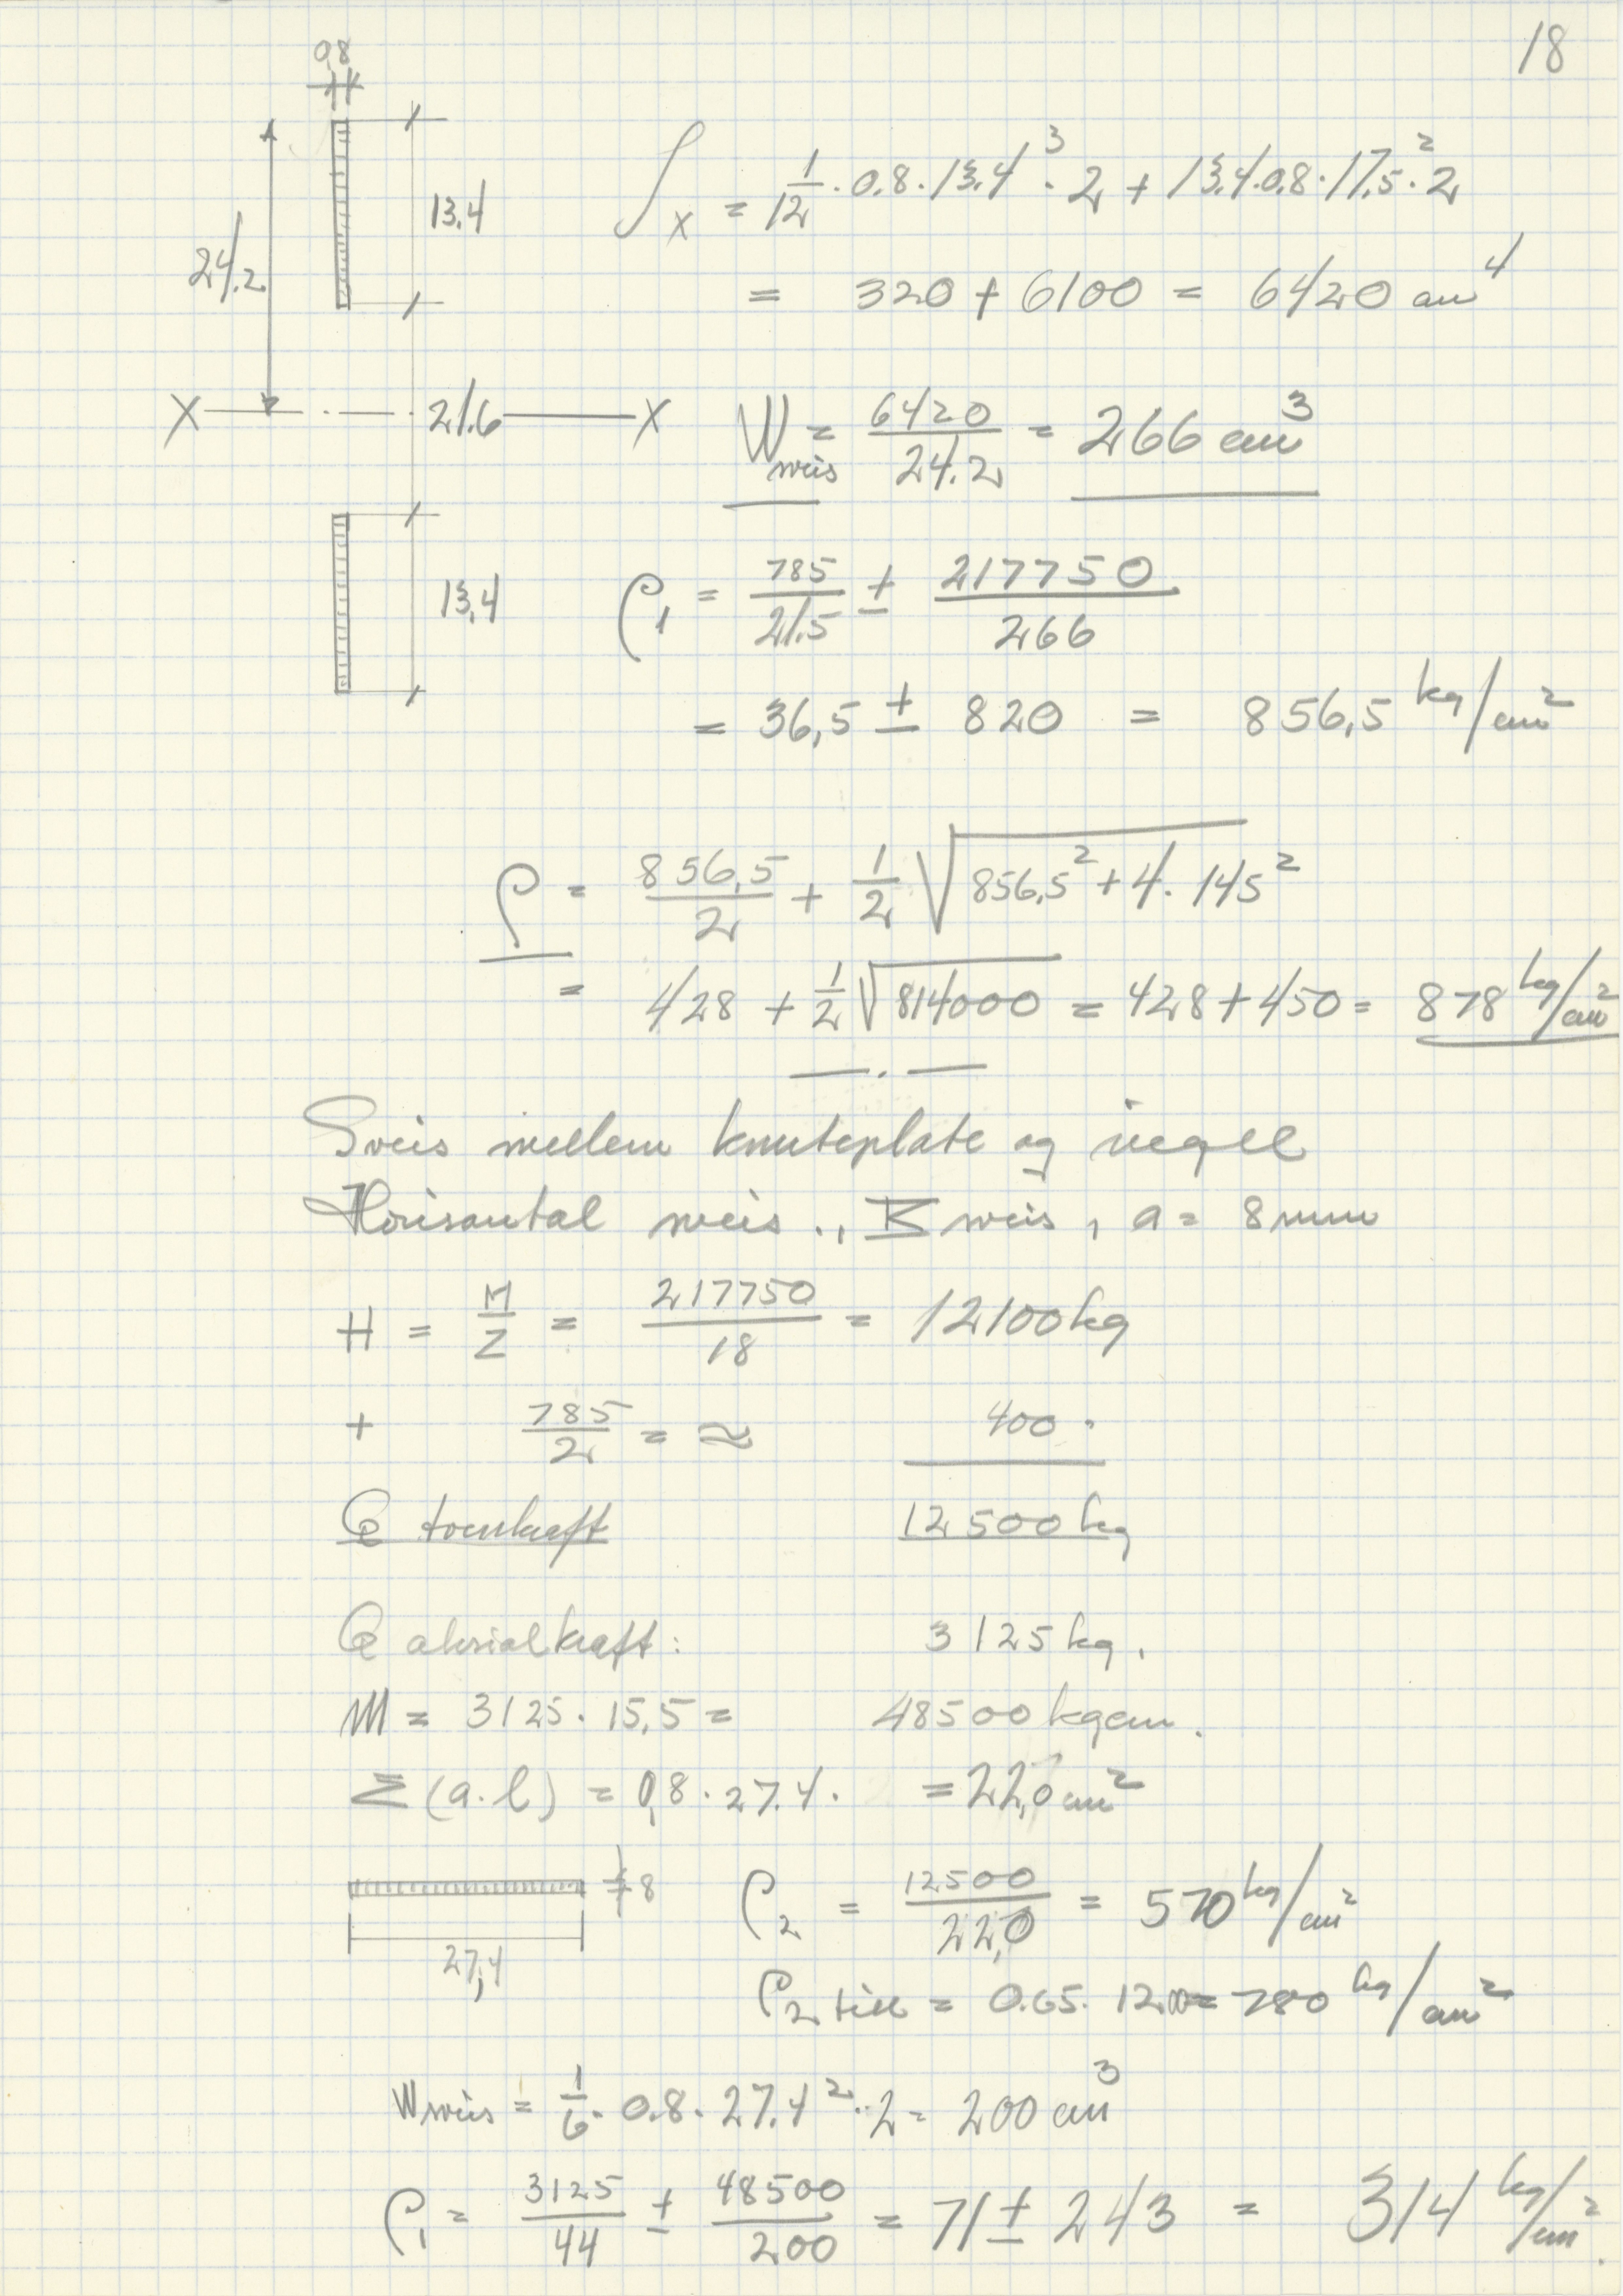 18
0,8
13,4
24.2
X 21.6 X
13,4
∫x = 1/12 · 0.8 · 13.4³ · 2 + 13.4 · 0.8 · 17.5² · 2
= 320 + 6100 = 6420 cm⁴
W sveis = 6420/24.2 = 266 cm³
ρ₁ = 785/21.5 ± 217750/266
= 36,5 ± 820 = 856,5 kg/cm²
ρ = 856,5/2 + 1/2 √856,5² + 4 · 145²
= 428 + 1/2 √814000 = 428 + 450 = 878 kg/cm²
— . —
Sveis mellem knuteplate og riegel
Horisontal sveis ., K sveis, a = 8 mm
H = M/Z = 217750/18 = 12100 kg
+ 785/2 = ≈ 400 ·
Q tverrkraft 12500 kg
Q aksialkraft: 3125 kg.
M = 3125 · 15,5 = 48500 kgcm.
Σ (a.l) = 0,8 · 27.4 · = 22,0 cm²
8
27,4
ρ₂ = 12500/22,0 = 570 kg/cm²
ρ₂ till = 0.65 · 1200 = 780 kg/cm²
W sveis = 1/6 · 0.8 · 27.4² · 2 = 200 cm³
ρ₁ = 3125/44 ± 48500/200 = 71 ± 243 = 314 kg/cm².